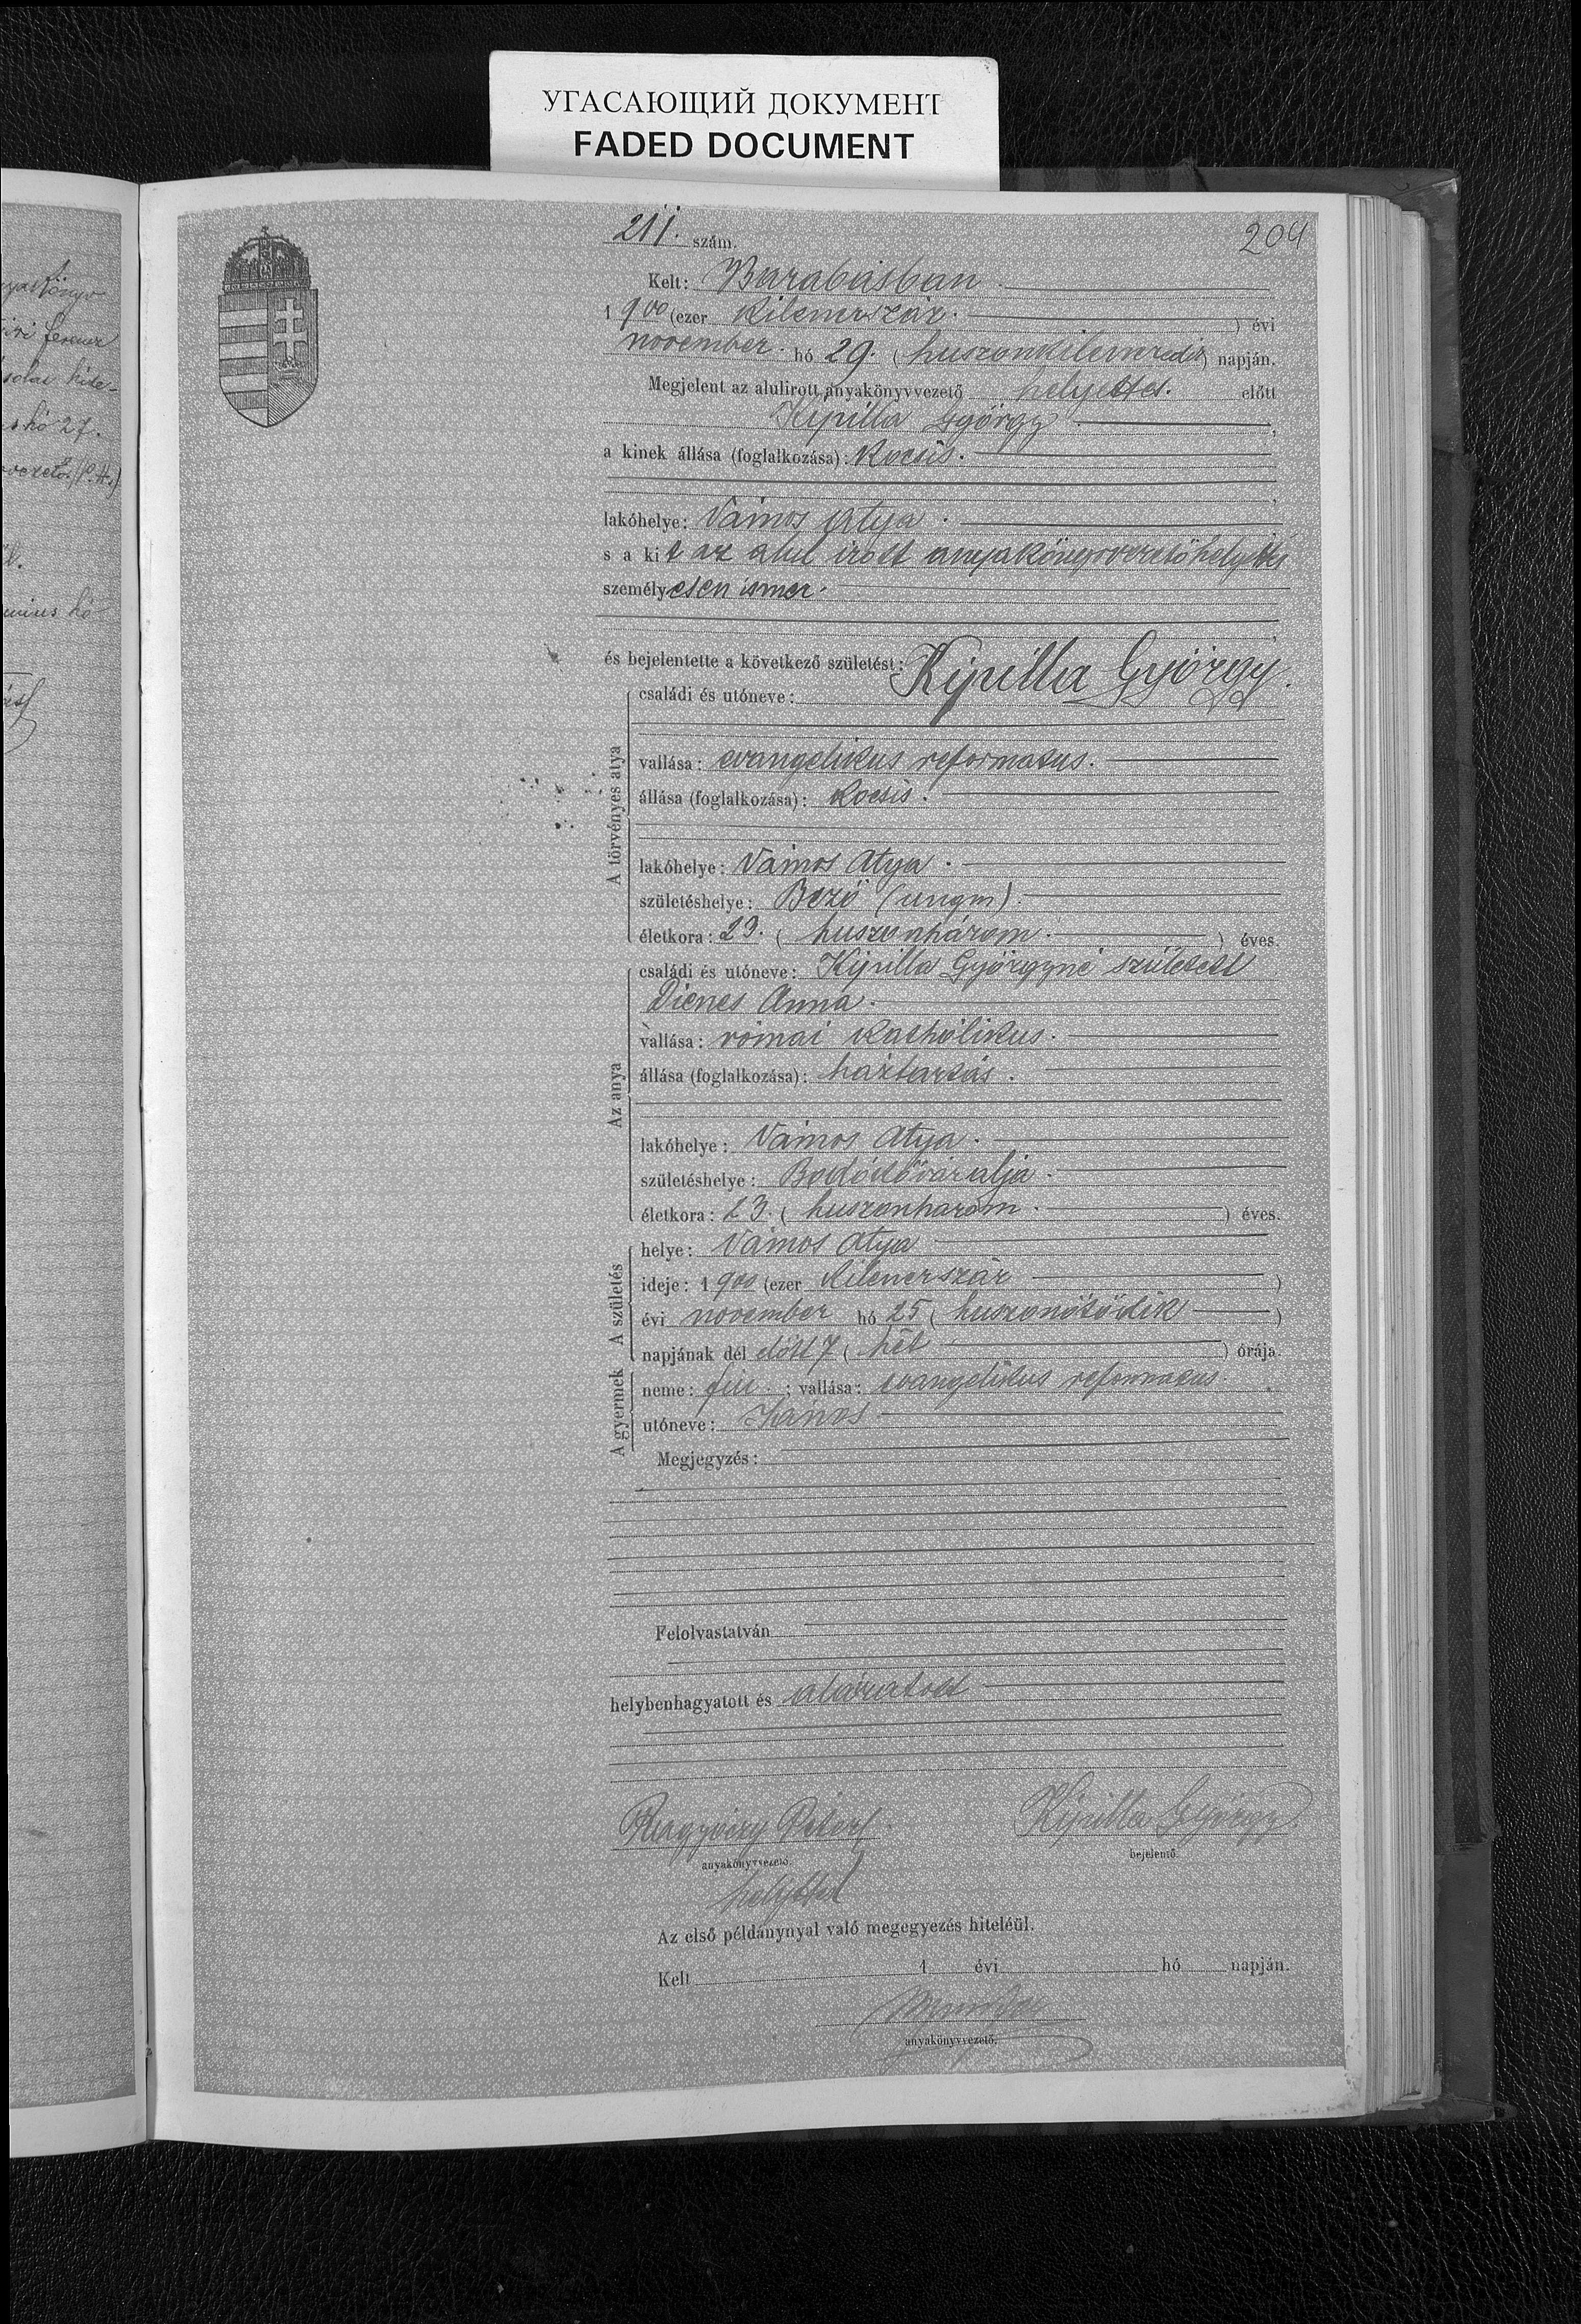 УГАСАЮЩИЙ ДОКУМЕНТ
FADED DOCUMENT
211. szám.
204
Kelt: Barabásban
1900 (ezer kilenczszáz. ) évi
november hó 29. (huszonkilenczedik) napján.
Megjelent az alulirott anyakönyvvezető helyettes. előtt
Kipilla György
a kinek állása (foglalkozása): kocsis.
lakóhelye: Vámos Atya.
s a kit az alul irott anyakönyvvezető helyettes
személyesen ismer.
és bejelentette a következő születést:
A törvényes atya
családi és utóneve: Kipilla György.
vallása: evangelikus reformatus.
állása (foglalkozása): kocsis.
lakóhelye: Vámos Atya.
születéshelye: Bező (ungm).
életkora: 23. (huszonhárom. ) éves.
Az anya
családi és utóneve: Kipilla Györgyné született
Dienes Anna.
vallása: római katholikus.
állása (foglalkozása): háztartás.
lakóhelye: Vámos Atya.
születéshelye:
életkora: 23. (huszonhárom. ) éves.
A születés
helye: Vámos Atya
ideje: 1900 (ezer kilenczszáz )
évi november hó 25 (huszonötödik )
napjának dél előtt 7 (hét ) órája.
A gyermek
neme: fiu. ; vallása: evangelikus reformatus.
utóneve: János
Megjegyzés:
Felolvastatván
helybenhagyatott és aláiratott
Kipilla György
anyakönyvvezető.
bejelentő.
helyettes
Az első példánynyal való megegyezés hiteléül.
Kelt 1 évi hó napján.
anyakönyvvezető.